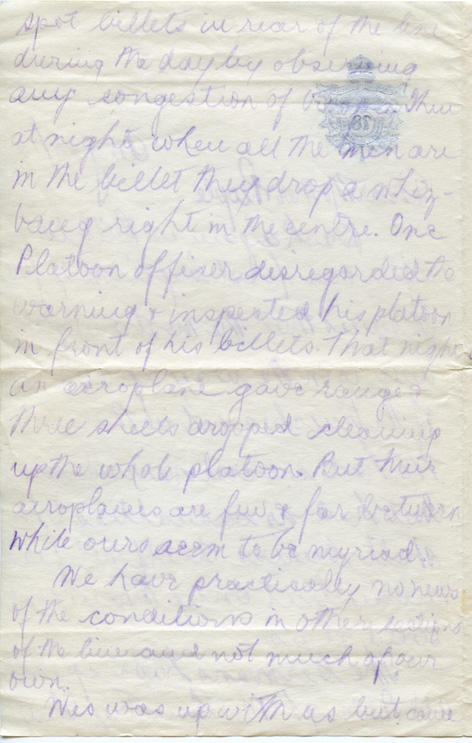 spot billets in rear of the line
during the day by observing
any congestion of Then
at night when all the men are
in the billet they drop a whiz-
bang right in the centre. One
Platoon officer disregarded the
warning & inspected his platoon
in front of his billets. That night
an aeroplane gave range &
three shells dropped cleaning
up the whole platoon. But their
aeroplanes are few & far between
while ours seem to be myriad.
We have practically no news
of the conditions in other sections
of the line and not much of our
own.
Wes was up with us but came